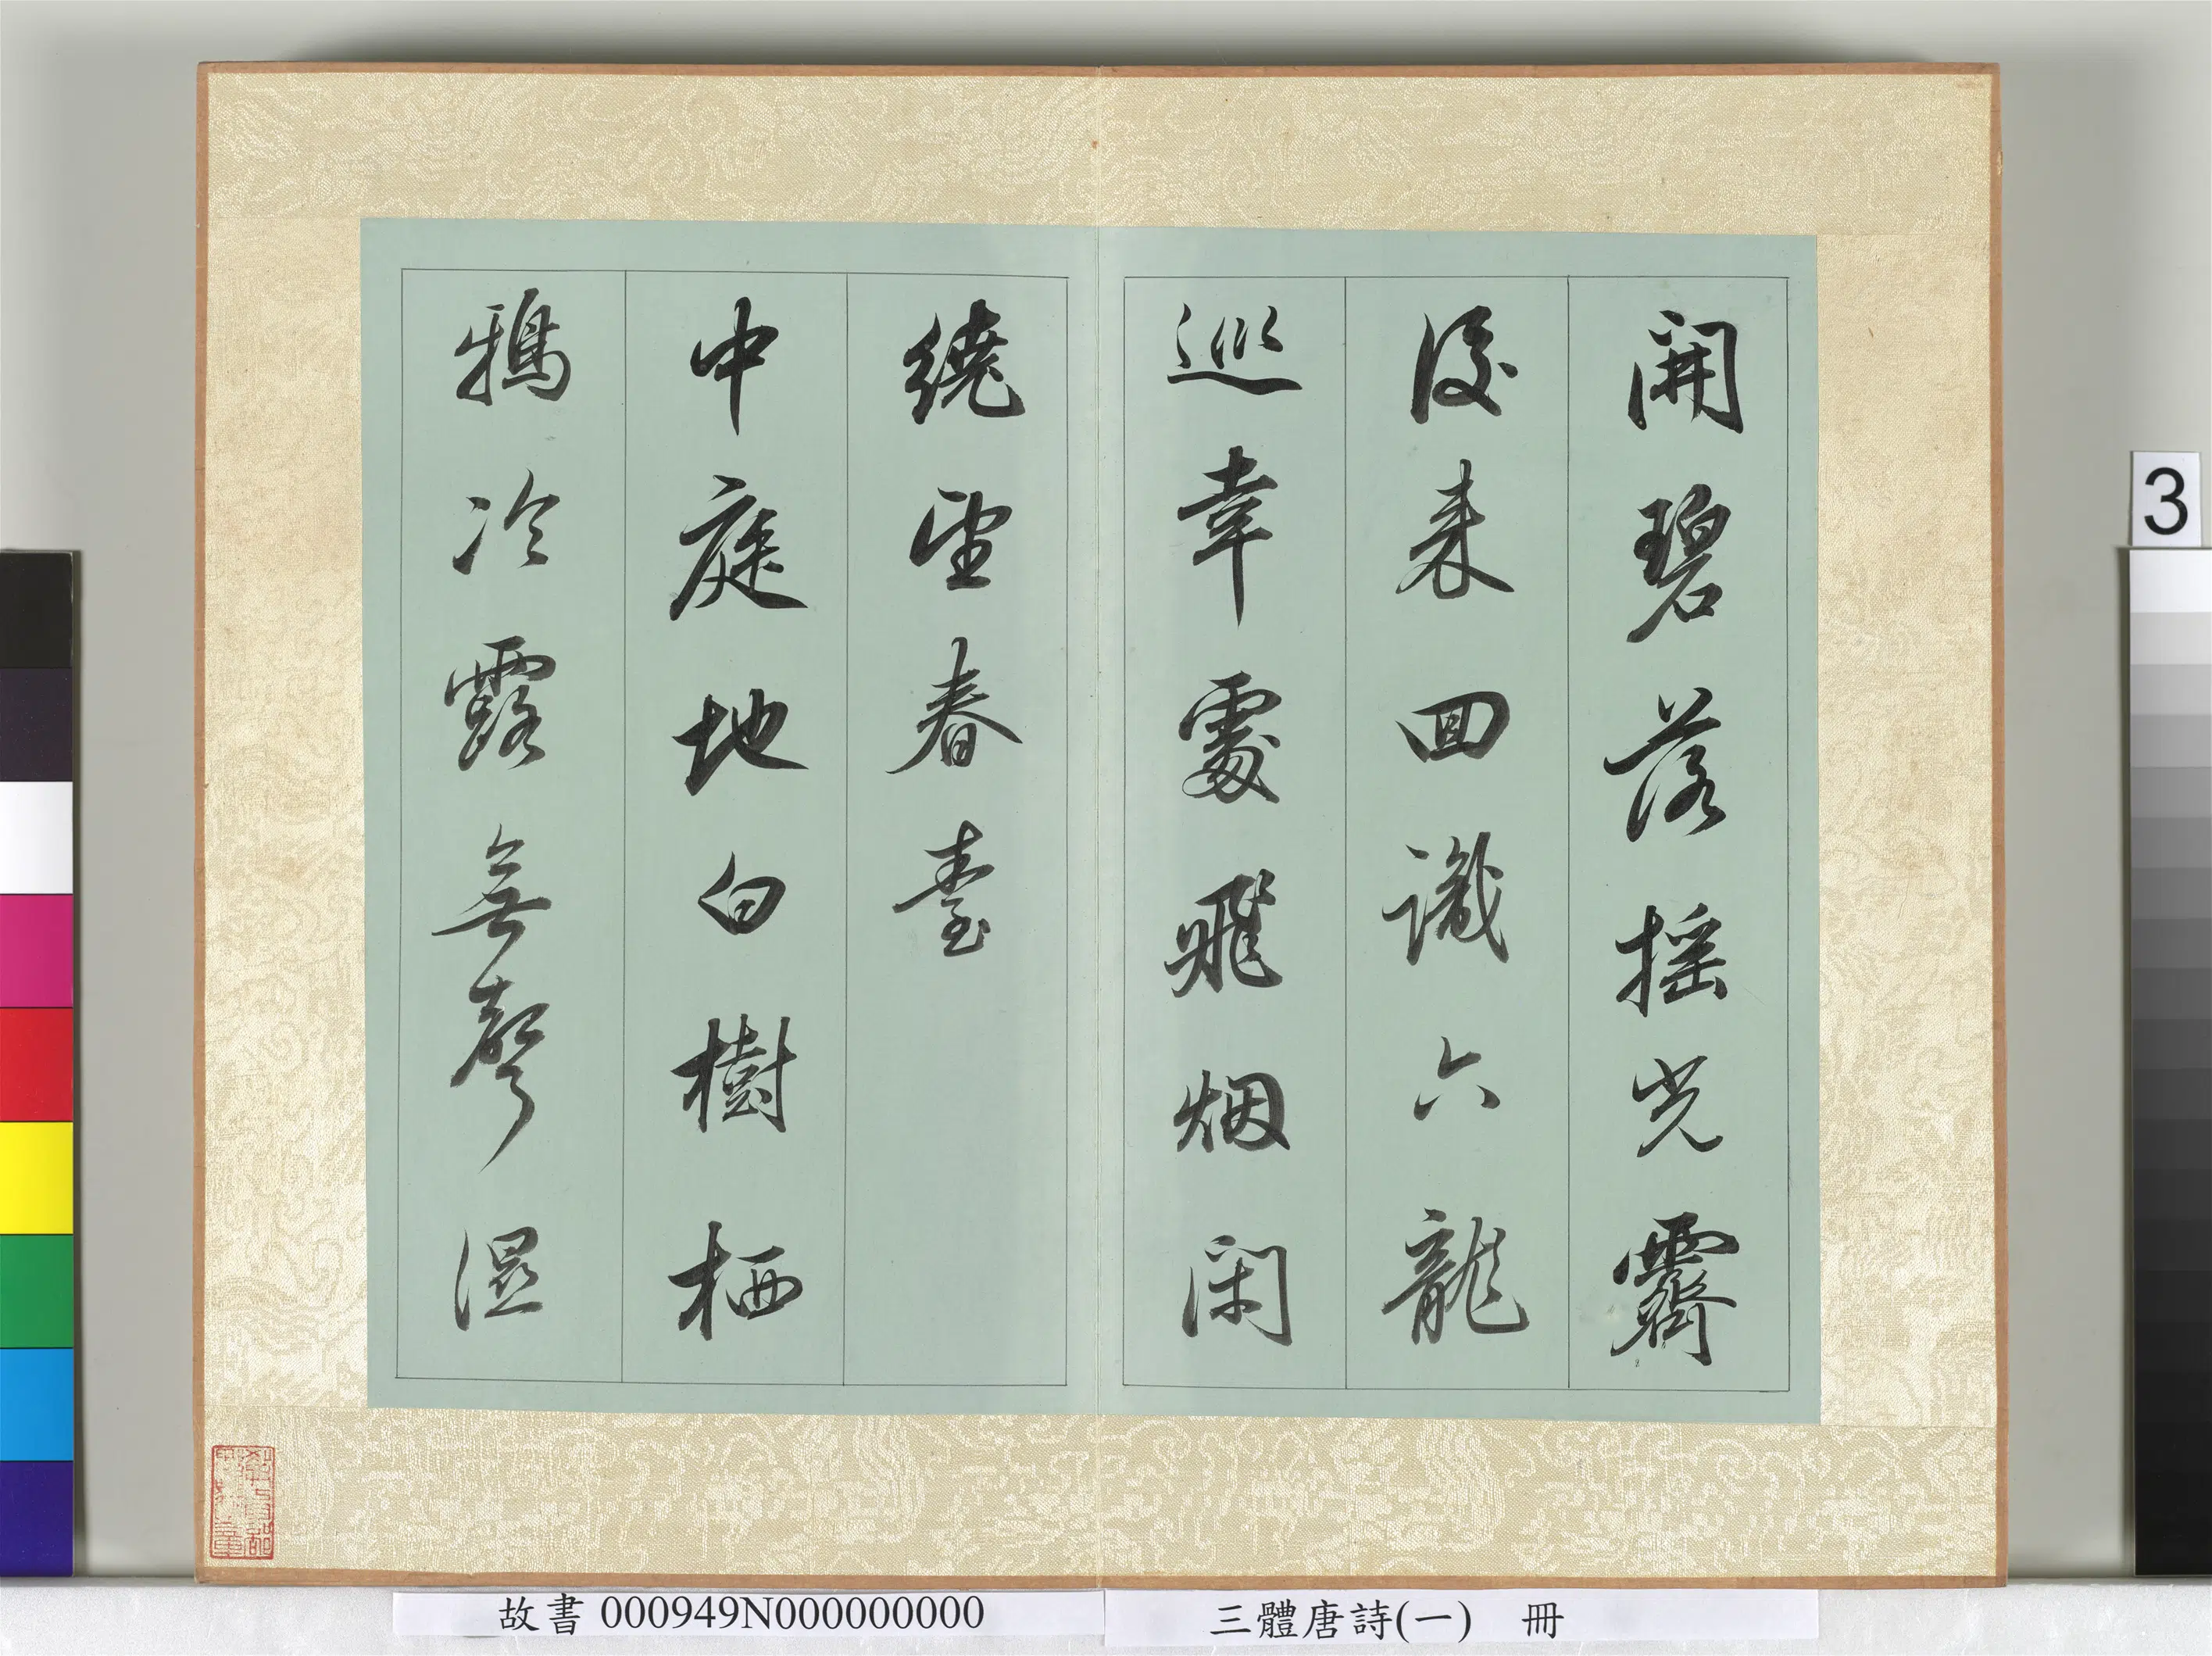 開碧落搖光霽
後来回識六龍
巡幸處飛烟閑
繞望春臺
中庭地白樹栖
鴉冷露無聲濕
故書 000949N000000000
三體唐詩(一) 冊
3